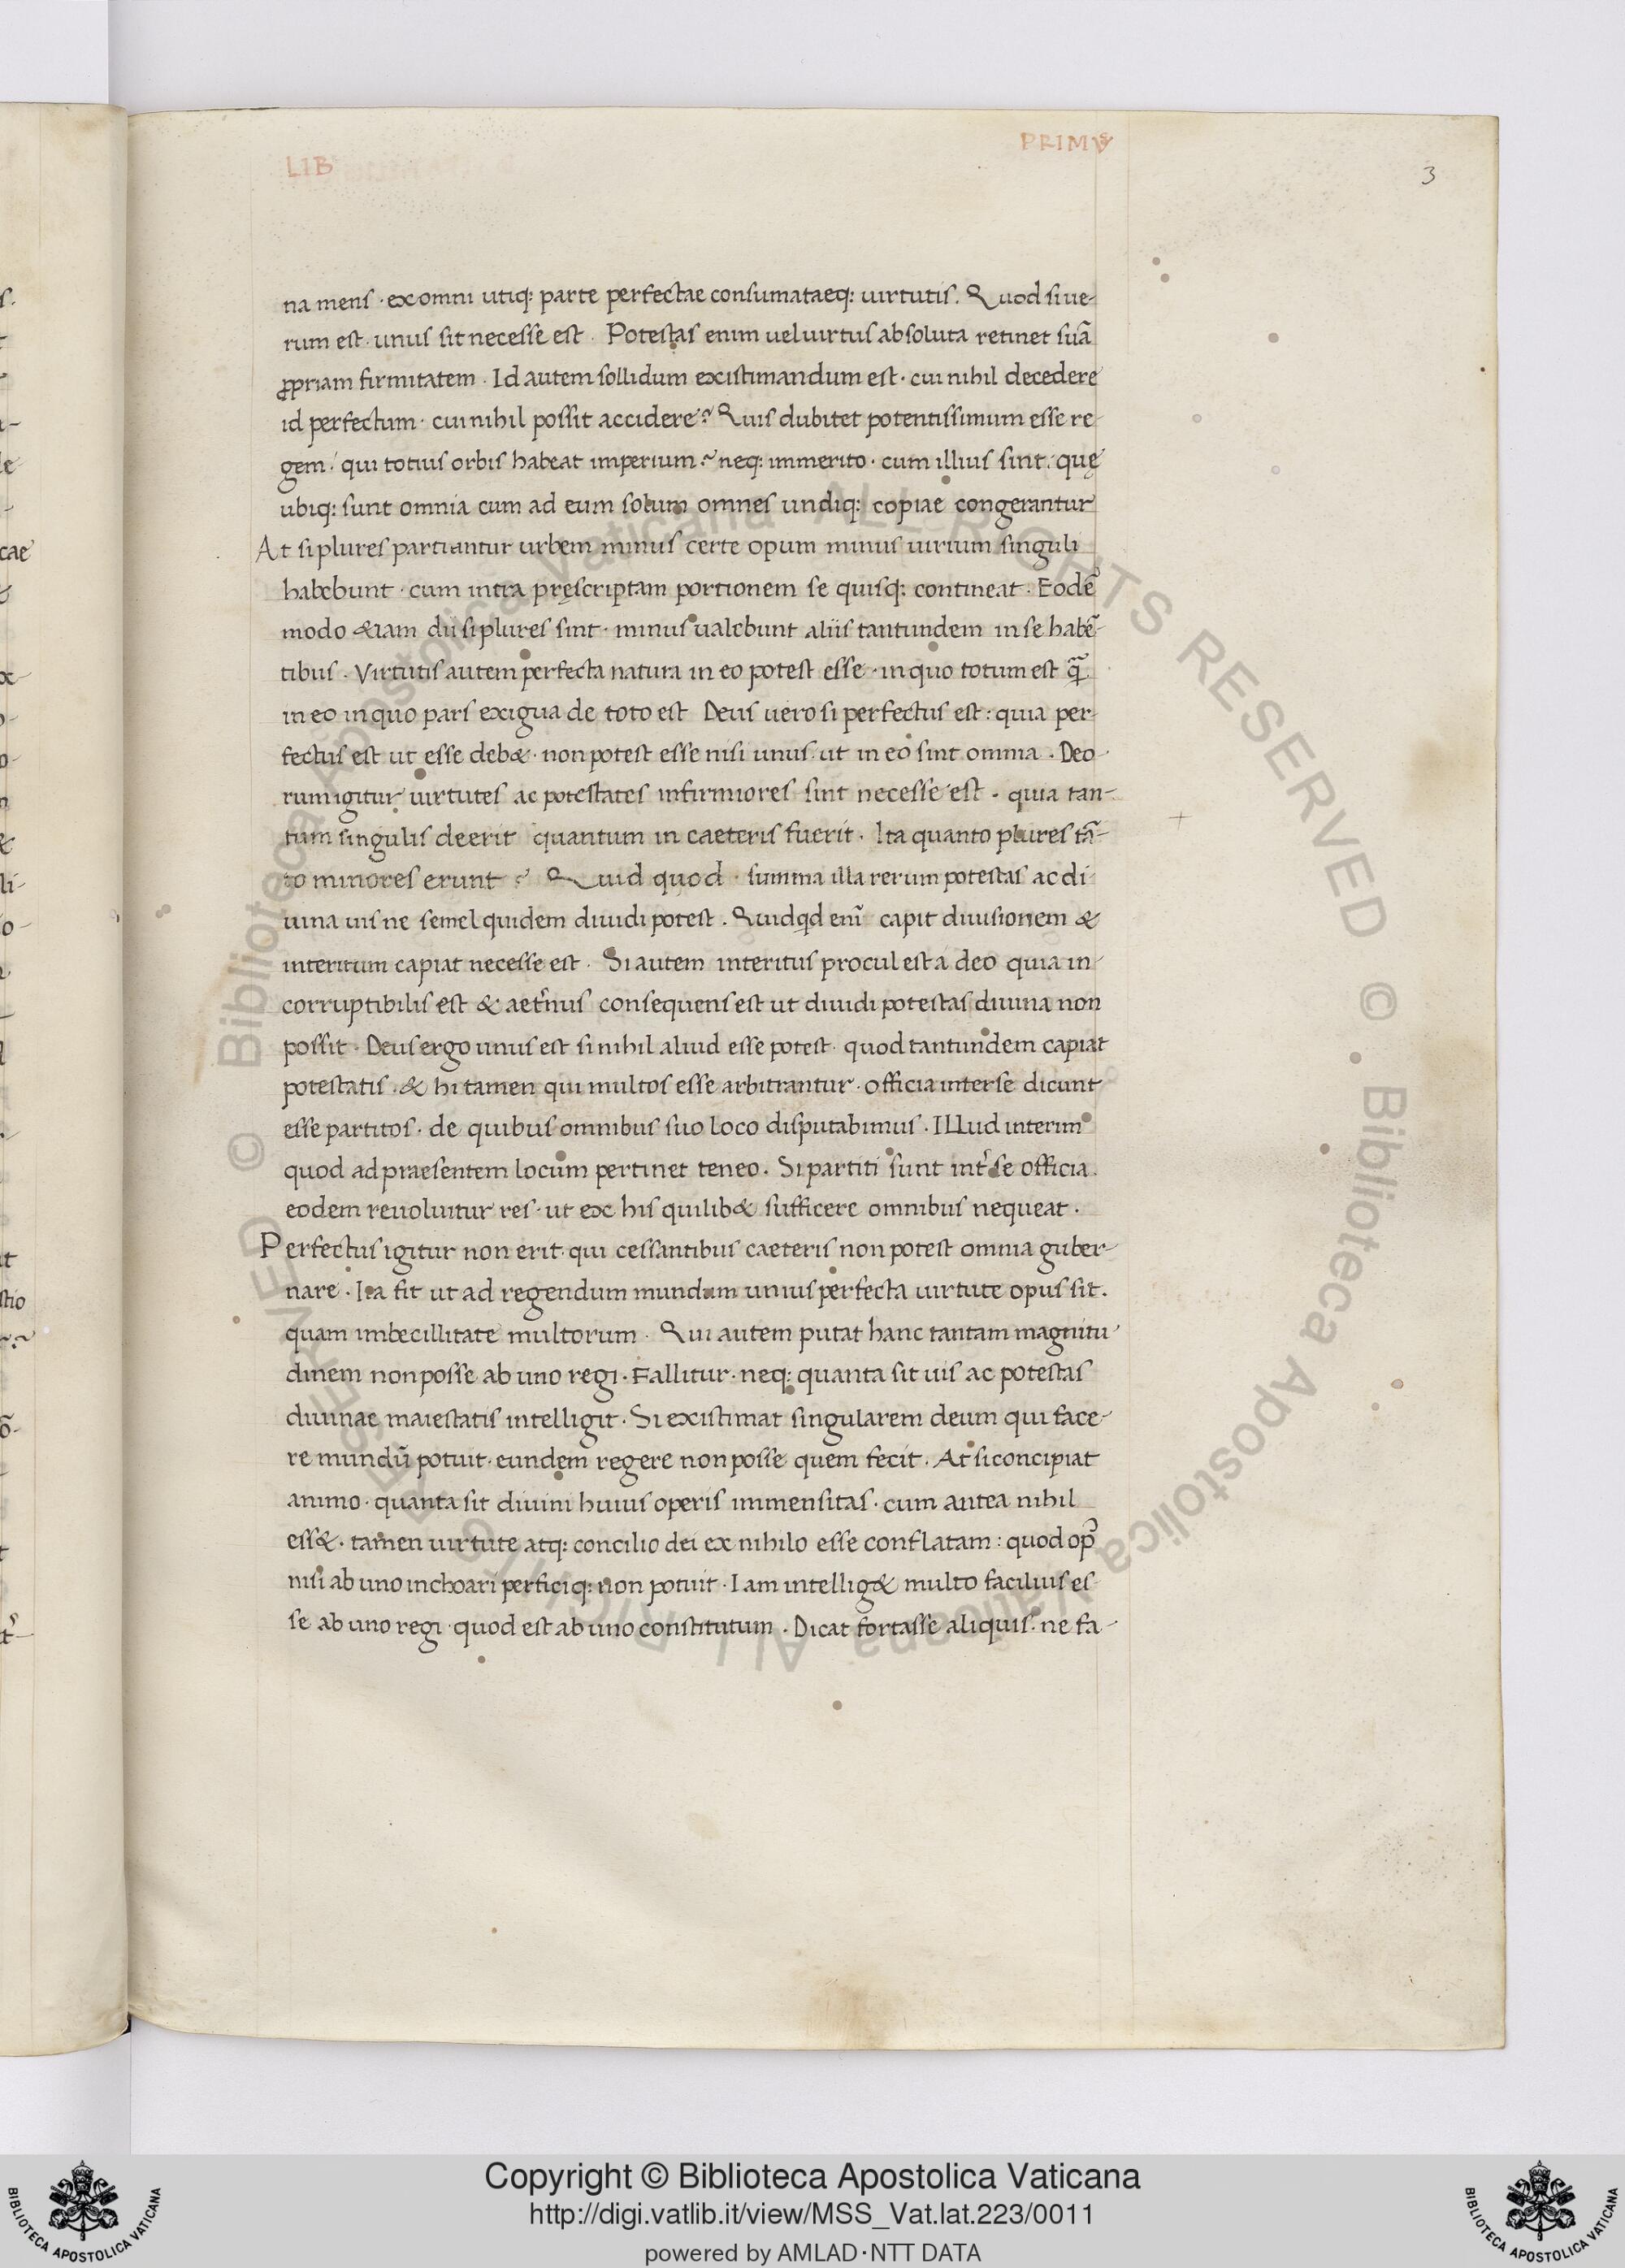 LIB PRIMVS
3
na mens · ex omni utiq: parte perfectae consumataeq: uirtutis. Quod si ue-
rum est · unus sit necesse est · Potestas enim uel uirtus absoluta retinet suā
ꝓpriam firmitatem · Id autem sollidum existimandum est · cui nihil decedere
id perfectum · cui nihil possit accidere? Quis dubitet potentissimum esse re-
gem · qui totius orbis habeat imperium? neq: immerito · cum illius sint · quę
ubiq: sunt omnia cum ad eum solum omnes undiq: copiae congerantur
At si plures partiantur urbem minus certe opum minus uirium singuli
habebunt · cum intra pręscriptam portionem se quisq: contineat · Eodē
modo &iam dii si plures sint · minus ualebunt aliis tantundem in se habē-
tibus · Virtutis autem perfecta natura in eo potest esse · in quo totum est q̄
in eo in quo pars exigua de toto est Deus uero si perfectus est: quia per-
fectus est ut esse deb& · non potest esse nisi unus · ut in eo sint omnia · Deo-
rum igitur uirtutes ac potestates infirmiores sint necesse est · quia tan-
tum singulis deerit quantum in caeteris fuerit · Ita quanto plures tā-
to minores erunt ? Quid quod · summa illa rerum potestas ac di
uina uis ne semel quidem diuidi potest . Quidqd enī capit diuisionem &
interitum capiat necesse est · Si autem interitus procul est á deo quia in-
corruptibilis est & aet̃nus consequens est ut diuidi potestas diuina non
possit · Deus ergo unus est si nihil aliud esse potest · quod tantundem capiat
potestatis · & hi tamen qui multos esse arbitrantur · officia inter se dicunt
esse partitos · de quibus omnibus suo loco disputabimus · ILLud interim
quod ad praesentem locum pertinet teneo . Si partiti sunt int̃ se officia
eodem reuoluitur res · ut ex his quilib& sufficere omnibus nequeat ·
Perfectus igitur non erit · qui cessantibus caeteris non potest omnia guber-
nare · Ita fit ut ad regendum mundum unius perfecta uirtute opus sit .
quam imbecillitate multorum · Qui autem putat hanc tantam magnitu-
dinem non posse ab uno regi · Fallitur · neq: quanta sit uis ac potestas
diuinae maiestatis intelligit · Si existimat singularem deum qui face-
re mundū potuit · eundem regere non posse quem fecit . At si concipiat
animo · quanta sit diuini huius operis immensitas · cum antea nihil
ess& · tamen uirtute atq: concilio dei ex nihilo esse conflatam : quod op̄
nisi ab uno inchoari perficiq: non potuit · Iam intellig& multo facilius es-
se ab uno regi · quod est ab uno constitutum . Dicat fortasse aliquis · ne fa-
© Biblioteca Apostolica Vaticana ALL RIGHTS RESERVED © · Biblioteca Apostolica Vaticana ALL RIGHTS RESERVED
Copyright © Biblioteca Apostolica Vaticana
http://digi.vatlib.it/view/MSS_Vat.lat.223/0011
powered by AMLAD·NTT DATA
BIBLIOTECA APOSTOLICA VATICANA
BIBLIOTECA APOSTOLICA VATICANA